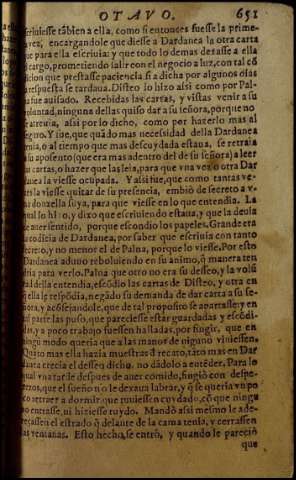 OTAVO. 651
escriuiesse tãbien a ella, como si entonces fuesse la prime-
ra vez, encargandole que diesse a Dardanea la otra carta
que para ella escriuia: y que todo lo demas dexasse a ella
cargo, prometiendo salir con el negocio a luz, con tal cõ
dicion que prestasse paciencia si a dicha por algunos dias
respuesta se tardaua. Disteo lo hizo assi como por Pal-
fue auisado. Recebidas las cartas, y vistas venir a su
voluntad, ninguna dellas quiso dar a su señora, porque no
atreuia, assi por lo dicho, como por hazerlo mas al
seguro. Y fue, que quãdo mas necessidad della Dardanea
tenia, o al tiempo que mas descuydada estaua, se retraia
a su aposento (que era mas adentro del de su señora) a leer
cartas, o hazer que las leia, para que vna vez o otra Dar
danea la viesse ocupada. Y assi fue, que como tantas ve-
zes la viesse quitar de su presencia, embió de secreto a v-
na donzella suya, para que viesse en lo que entendia. La
qual lo hizo, y dixo que escriuiendo estaua, y que la deuia
de auer sentido, porque escondio los papeles. Grande era
la codicia de Dardanea, por saber que escriuia con tanto
secreto, y no menor el de Palna, porque lo viesse. Por esto
Dardanea aduuo reboluiendo en su animo, q̃ manera ten
dria para verlo. Palna que otro no era su desseo, y la volũ
tad della entendia, escõdio las cartas de Disteo, y otra en
q̃ ella le respõdia, negãdo su demanda de dar carta a su se-
ñora, y acõsejandole, que de tal proposito se apartasse: y en
tal parte las puso, que pareciesse estar guardadas y escõdi-
das, y a poco trabajo fuessen halladas, por fingir, que en
ningũ modo queria que a las manos de niguno viniessen.
Quãto mas ella hazia muestras d̃ recato, tãto mas en Dar
danea crecia el desseo dicho, no dãdolo a entẽder. Para lo
qual vna tarde despues de auer comido, fingió con despe-
rezos, que el sueño no le dexaua labrar, y q̃ se queria vn po
co retraer a dormir, que tuuiessen cuydado, cõ que ningu
no entrasse, ni hiziesse ruydo. Mandò assi mesmo le ade-
reçassen el estrado q̃ delante de la cama tenia, y cerrassen
las ventanas. Esto hecho, se entrò, y quando le pareciò
que